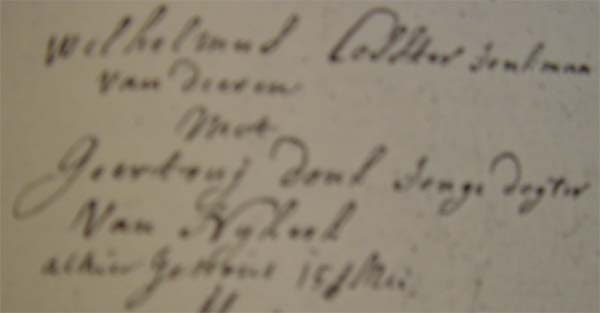 Wilhelmus Coster Jonkman
van dieren
Met
Geertruij Jonge dogter
Van Nykerk
alhier Getrout 15 Mei